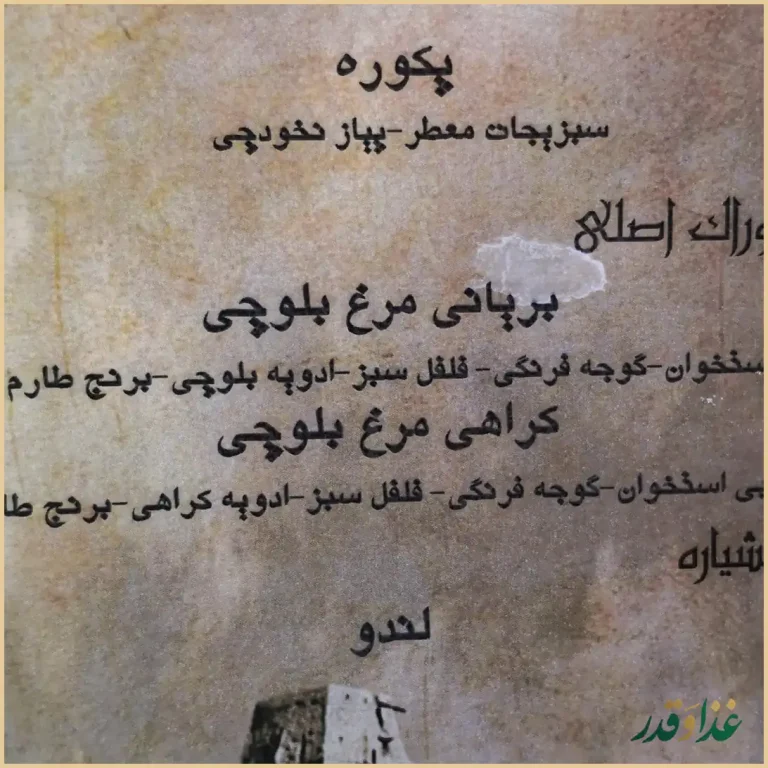 پکوره
سبزیجات معطر-پیاز نخودچی
وراک اصلی
بریانی مرغ بلوچی
ستخوان-گوجه فرنگی- فلفل سبز-ادویه بلوچی-برنج طارم
کراهی مرغ بلوچی
بی استخوان-گوجه فرنگی- فلفل سبز-ادویه کراهی-برنج طا
شیاره
لندو
غذا و قدر